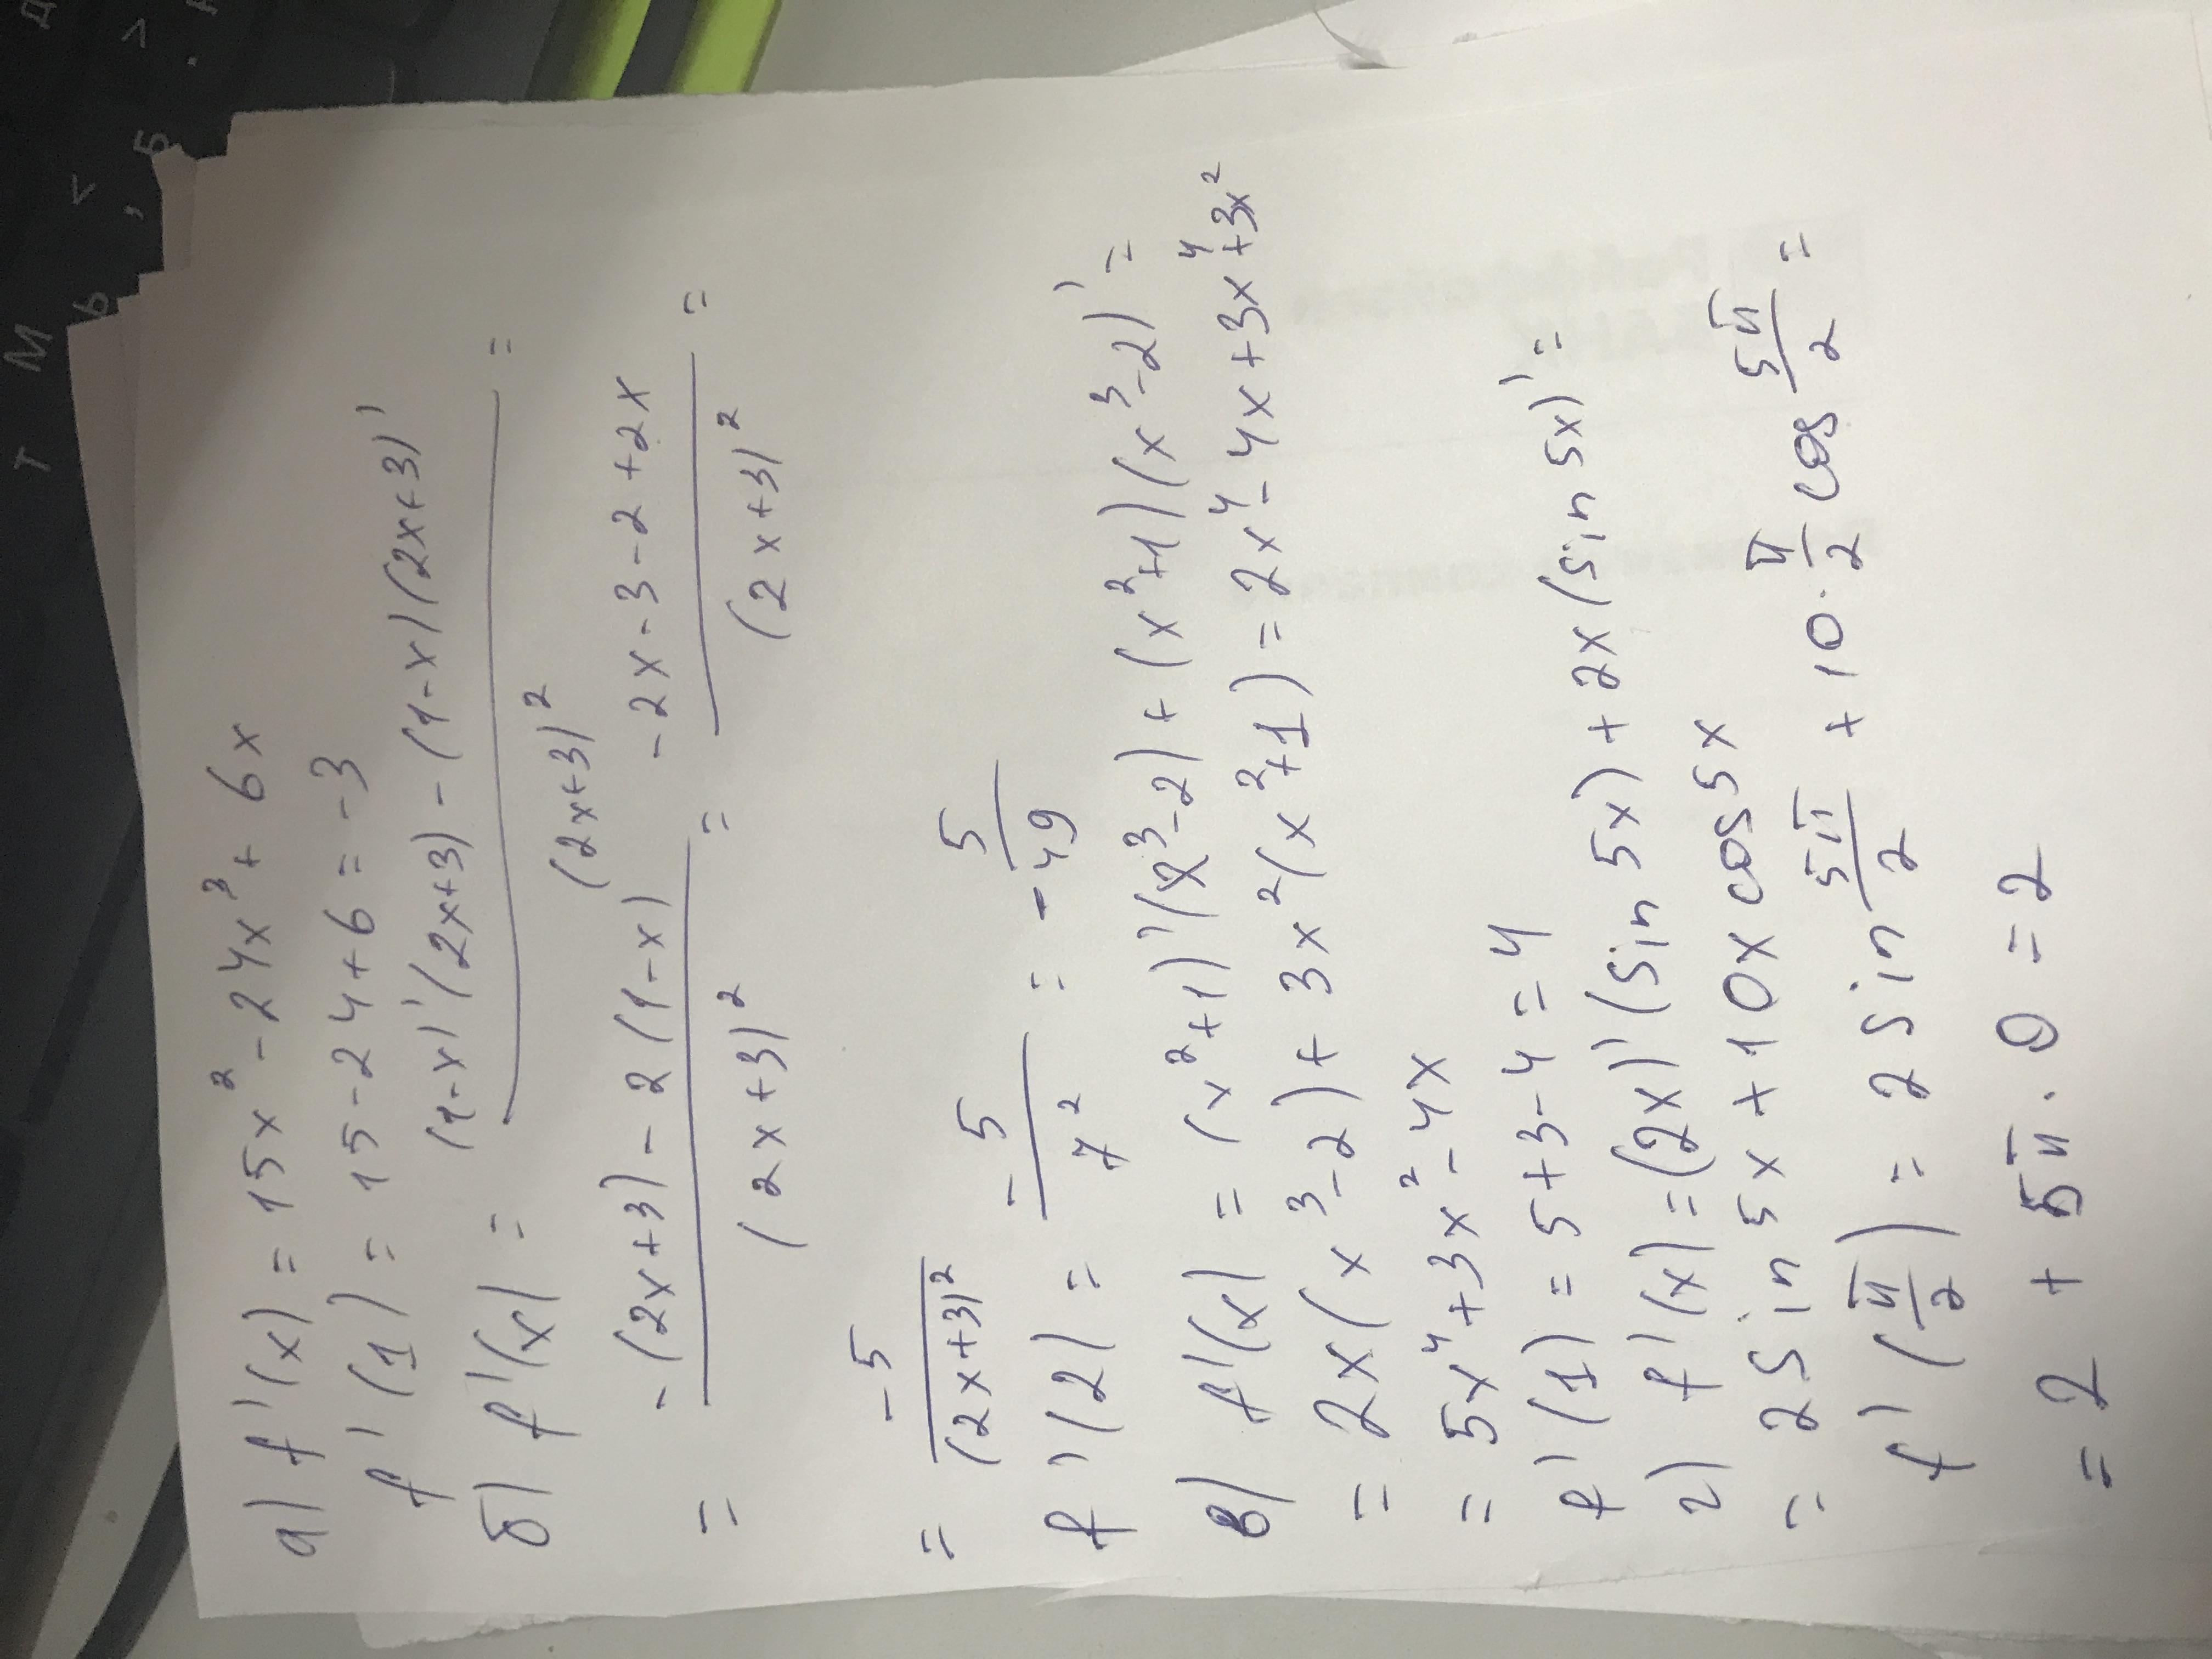 а) f'(x) = 15x² - 24x³ + 6x
f'(1) = 15 - 24 + 6 = -3
б) f'(x) = ((1-x)'(2x+3) - (1-x)(2x+3)')/(2x+3)² =
= (-(2x+3) - 2(1-x))/(2x+3)² = (-2x-3-2+2x)/(2x+3)² =
= -5/(2x+3)²
f'(2) = -5/7² = -5/49
в) f'(x) = (x²+1)'(x³-2) + (x²+1)(x³-2)' =
= 2x(x³-2) + 3x²(x²+1) = 2x⁴ - 4x + 3x⁴ + 3x²
= 5x⁴ + 3x² - 4x
f'(1) = 5 + 3 - 4 = 4
г) f'(x) = (2x)'(sin 5x) + 2x(sin 5x)' =
= 2 sin 5x + 10x cos 5x
f'(π/2) = 2 sin 5π/2 + 10·π/2 cos 5π/2 =
= 2 + 5π · 0 = 2
Т М Ь
< , Б > .